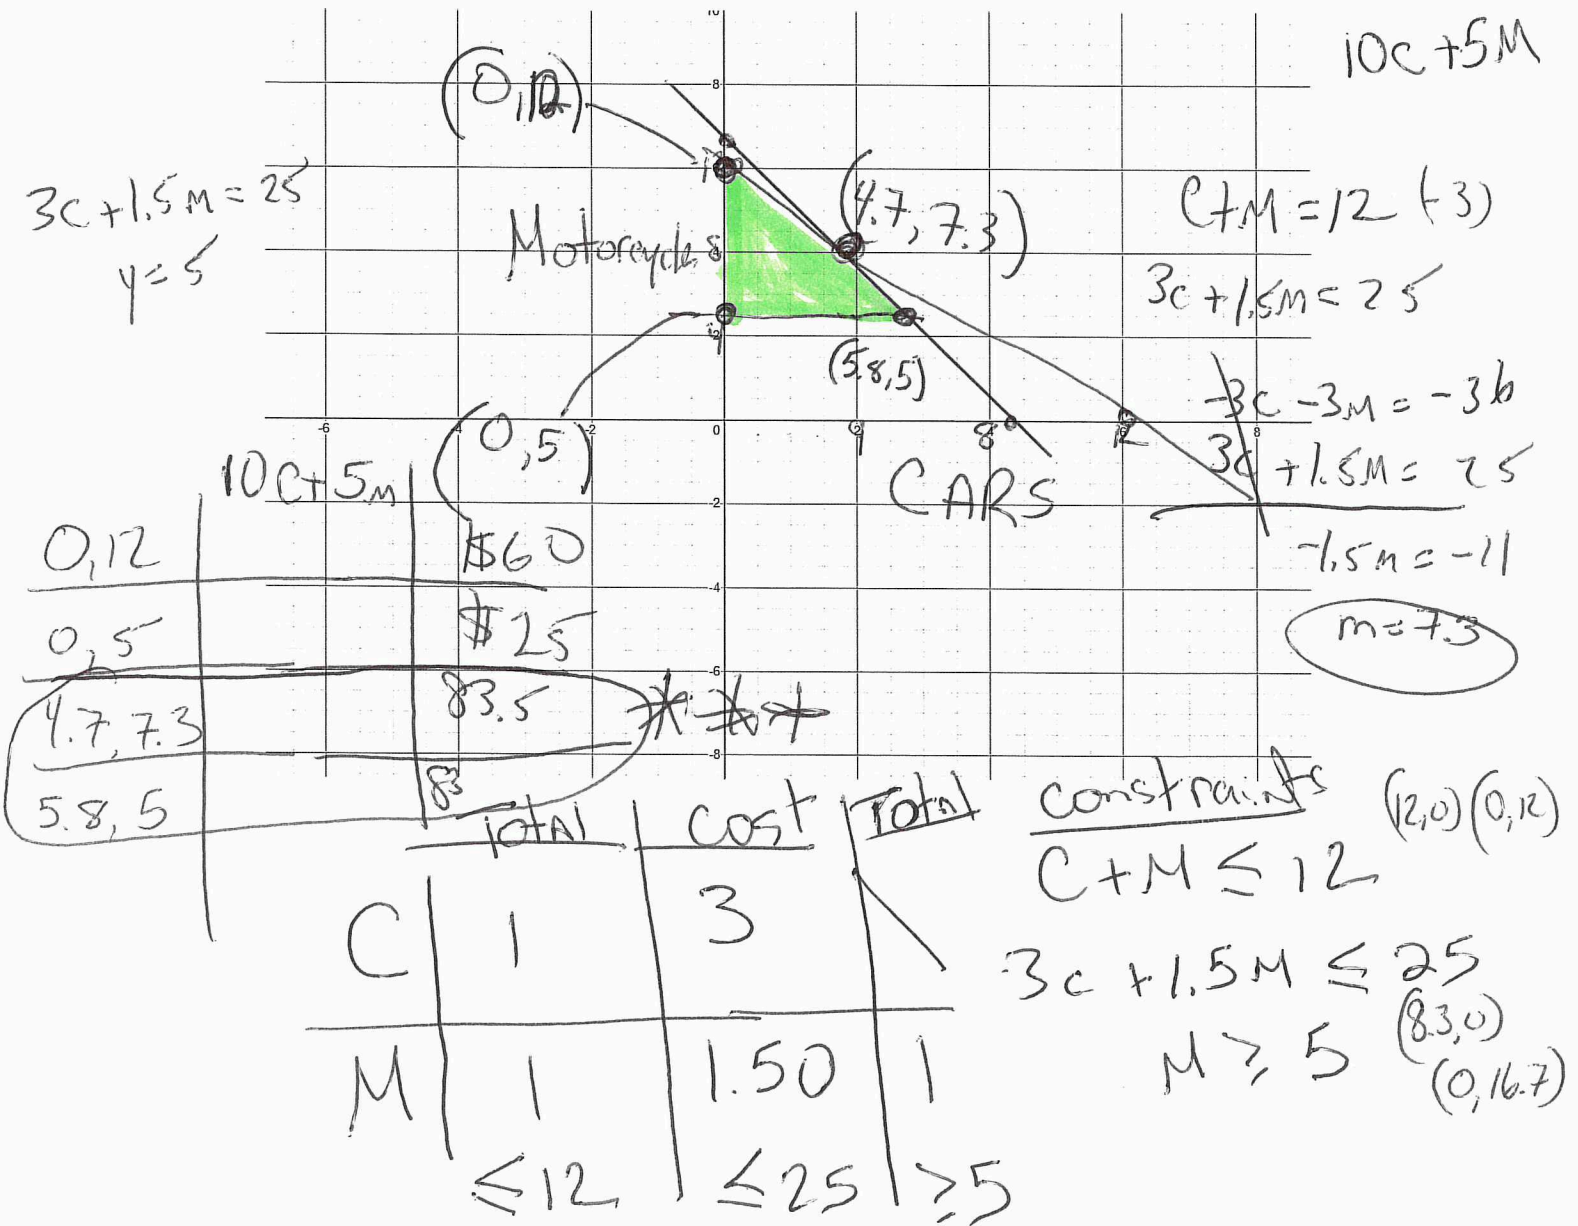 10c+5M
(0,12)
3c+1.5m=25
y=5
Motorcycles
(4.7, 7.3)
C+M=12 (-3)
3c+1.5m=25
(5.8,5)
-3c-3M=-36
3c+1.5M=25
-1.5m=-11
m=7.3
(0,5)
CARS
10C+5m
0,12 $60
0,5 $25
4.7, 7.3 83.5 ***
5.8, 5 83
10
8
8
4
2
-6 -4 -2 0 2 8 12 8
-2
-4
-6
-8
Total Cost Total
C 1 3
M 1 1.50 1
≤12 ≤25 ≥5
constraints (12,0)(0,12)
C+M≤12
3c+1.5M≤25
(8.3,0)
M≥5
(0,16.7)